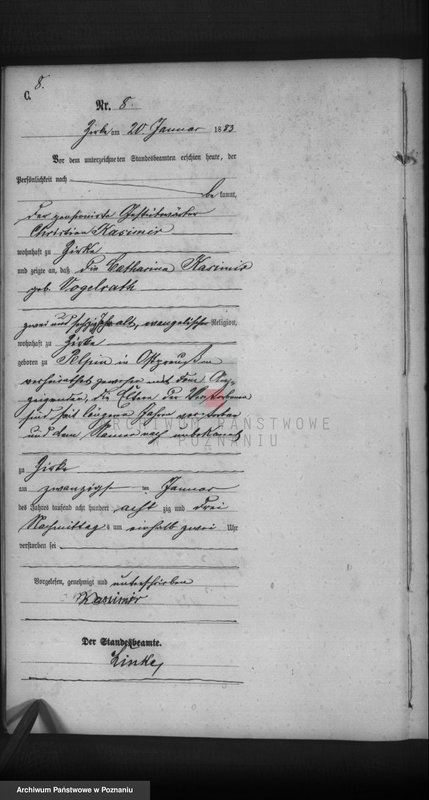 8.
C.
Nr. 8.
Zirke am 20. Januar 1883
Vor dem unterzeichneten Standesbeamten erschien heute, der
Persönlichkeit nach
be kannt,
der pensionirte Gestütwärter
Christian Kasimir
wohnhaft zu Zirke
und zeigte an, daß die Catharina Kasimir
geb. Vogelrath
zwei und sechzig Jahre alt, evangelischer Religion,
wohnhaft zu Zirke
geboren zu in Ostpreußen
verheirathet gewesen mit dem An-
zeigenden, die Eltern der Verstorbenen
sind seit längeren Jahren verstorben
und dem Namen nach unbekannt
zu Zirke
am zwanzigst en Januar
des Jahres tausend acht hundert acht zig und drei
Nachmittag s um einhalb zwei Uhr
verstorben sei
Vorgelesen, genehmigt und unterschrieben
Kasimir
Der Standesbeamte.
Linke
ARCHIWUM PAŃSTWOWE
W POZNANIU
Archiwum Państwowe w Poznaniu